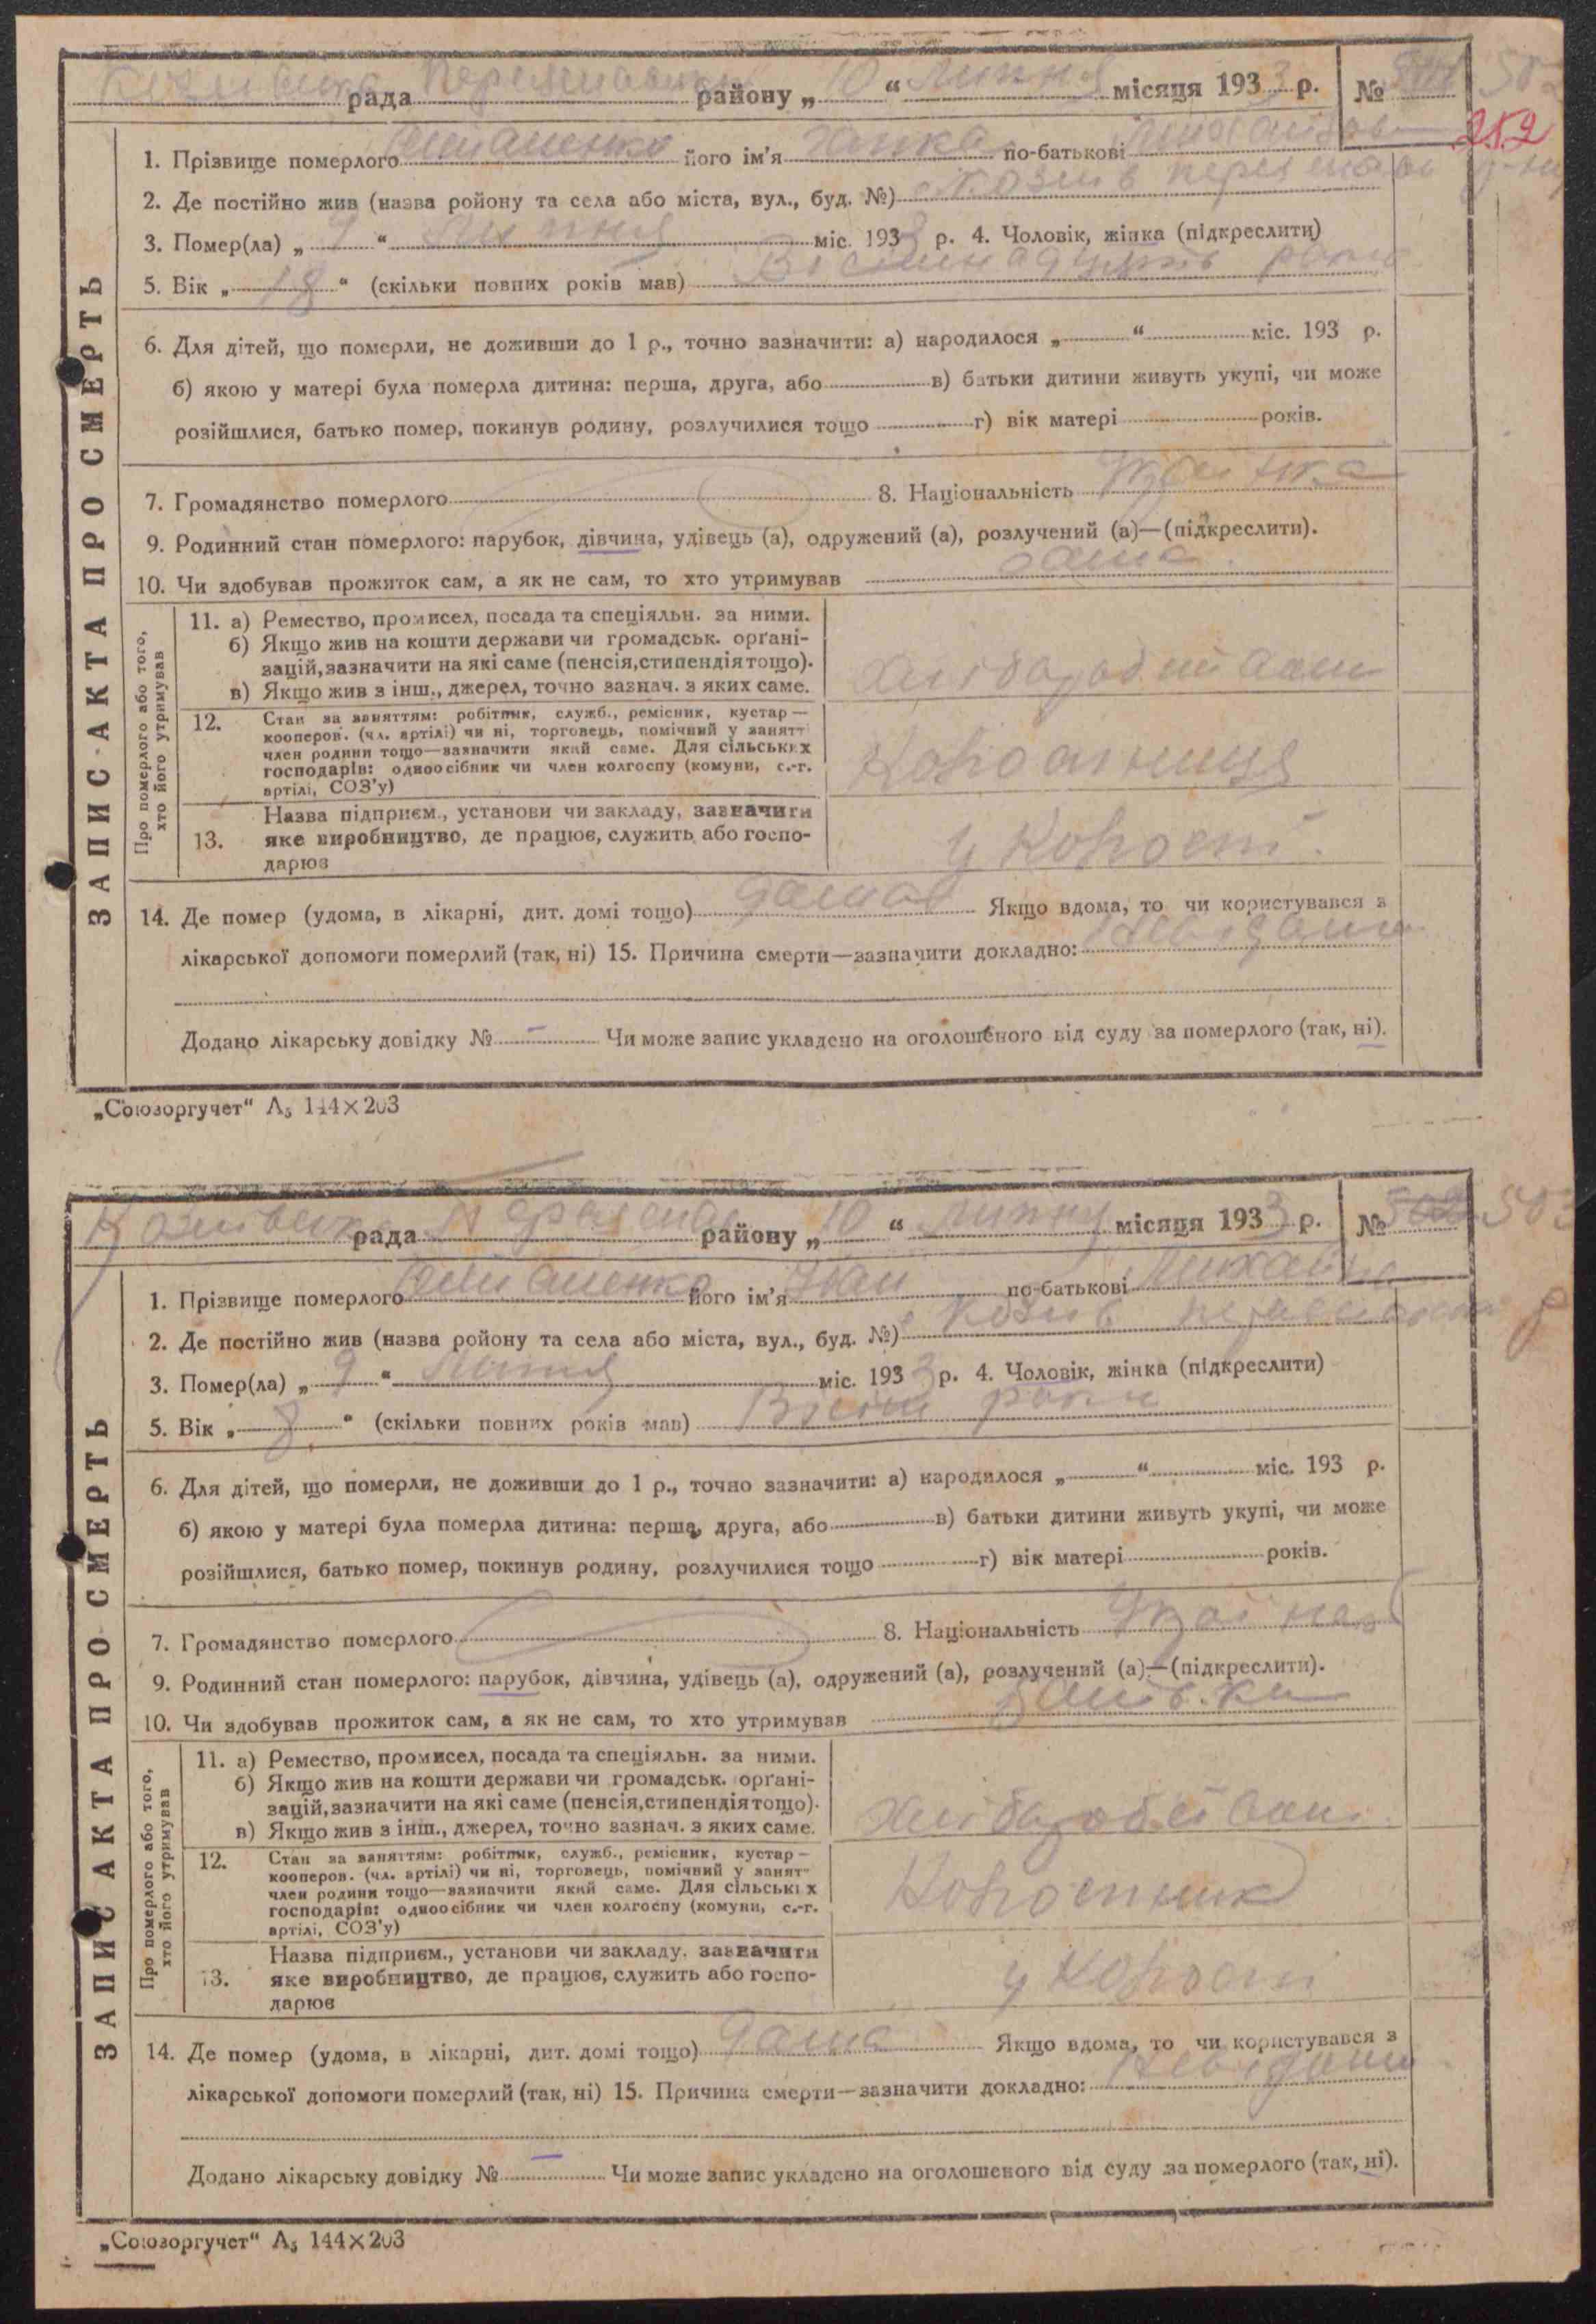 Козлівська рада Переяславськ району „ 10 “ Липня місяця 1933 р. № 502
252
ЗАПИС АКТА ПРО СМЕРТЬ
1. Прізвище померлого його ім'я Ганка по-батькові
2. Де постійно жив (назва ройону та села або міста, вул., буд. №) с. Козлів
3. Помер(ла) „ 9 “ Липня міс. 1933 р. 4. Чоловік, жінка (підкреслити)
5. Вік „ 18 “ (скільки повних років мав) Вісімнадцять років
6. Для дітей, що померли, не доживши до 1 р., точно зазначити: а) народилося „ “ міс. 193 р.
б) якою у матері була померла дитина: перша, друга, або в) батьки дитини живуть укупі, чи може
розійшлися, батько помер, покинув родину, розлучилися тощо г) вік матері років.
7. Громадянство померлого 8. Національність Українка
9. Родинний стан померлого: парубок, дівчина, удівець (а), одружений (а), розлучений (а)—(підкреслити).
10. Чи здобував прожиток сам, а як не сам, то хто утримував сама
Про померлого або того, хто його утримував
11. а) Ремество, промисел, посада та спеціяльн. за ними.
б) Якщо жив на кошти держави чи громадськ. орґані-
зацій, зазначити на які саме (пенсія, стипендія тощо).
в) Якщо жив з інш., джерел, точно зазнач. з яких саме.
12. Стан за заняттям: робітник, служб., ремісник, кустар—
кооперов. (чл. артілі) чи ні, торговець, помічний у занятт
член родини тощо—зазначити який саме. Для сільських
господарів: одноосібник чи член колгоспу (комуни, с.-г.
артілі, СОЗ'у)
Колгоспниця
13. Назва підприєм., установи чи закладу, зазначити
яке виробництво, де працює, служить або госпо-
дарює
у Колгоспі.
14. Де помер (удома, в лікарні, дит. домі тощо) дома Якщо вдома, то чи користувався з
лікарської допомоги померлий (так, ні) 15. Причина смерти—зазначити докладно: Невідоми
Додано лікарську довідку № – Чи може запис укладено на оголошеного від суду за померлого (так, ні).
„Союзоргучет“ А₅ 144×203
Козлівська рада Переяслав району „ 10 “ Липня місяця 1933 р. № 503
ЗАПИС АКТА ПРО СМЕРТЬ
1. Прізвище померлого його ім'я Іван по-батькові Михайл
2. Де постійно жив (назва ройону та села або міста, вул., буд. №) с. Козлів
3. Помер(ла) „ 9 “ Липня міс. 1933 р. 4. Чоловік, жінка (підкреслити)
5. Вік „ 8 “ (скільки повних років мав) Вісім років
6. Для дітей, що померли, не доживши до 1 р., точно зазначити: а) народилося „ “ міс. 193 р.
б) якою у матері була померла дитина: перша, друга, або в) батьки дитини живуть укупі, чи може
розійшлися, батько помер, покинув родину, розлучилися тощо г) вік матері років.
7. Громадянство померлого 8. Національність
9. Родинний стан померлого: парубок, дівчина, удівець (а), одружений (а), розлучений (а)—(підкреслити).
10. Чи здобував прожиток сам, а як не сам, то хто утримував
Про померлого або того, хто його утримував
11. а) Ремество, промисел, посада та спеціяльн. за ними.
б) Якщо жив на кошти держави чи громадськ. орґані-
зацій, зазначити на які саме (пенсія, стипендія тощо).
в) Якщо жив з інш., джерел, точно зазнач. з яких саме.
12. Стан за заняттям: робітник, служб., ремісник, кустар—
кооперов. (чл. артілі) чи ні, торговець, помічний у занят
член родини тощо—зазначити який саме. Для сільських
господарів: одноосібник чи член колгоспу (комуни, с.-г.
артілі, СОЗ'у)
Колгоспник
13. Назва підприєм., установи чи закладу, зазначити
яке виробництво, де працює, служить або госпо-
дарює
у Колгоспі
14. Де помер (удома, в лікарні, дит. домі тощо) дома Якщо вдома, то чи користувався з
лікарської допомоги померлий (так, ні) 15. Причина смерти—зазначити докладно: Невідоми
Додано лікарську довідку № – Чи може запис укладено на оголошеного від суду за померлого (так, ні).
„Союзоргучет“ А₅ 144×203